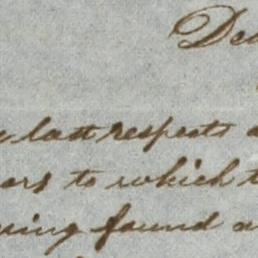 De
last respects a
ars to which t
ving found a